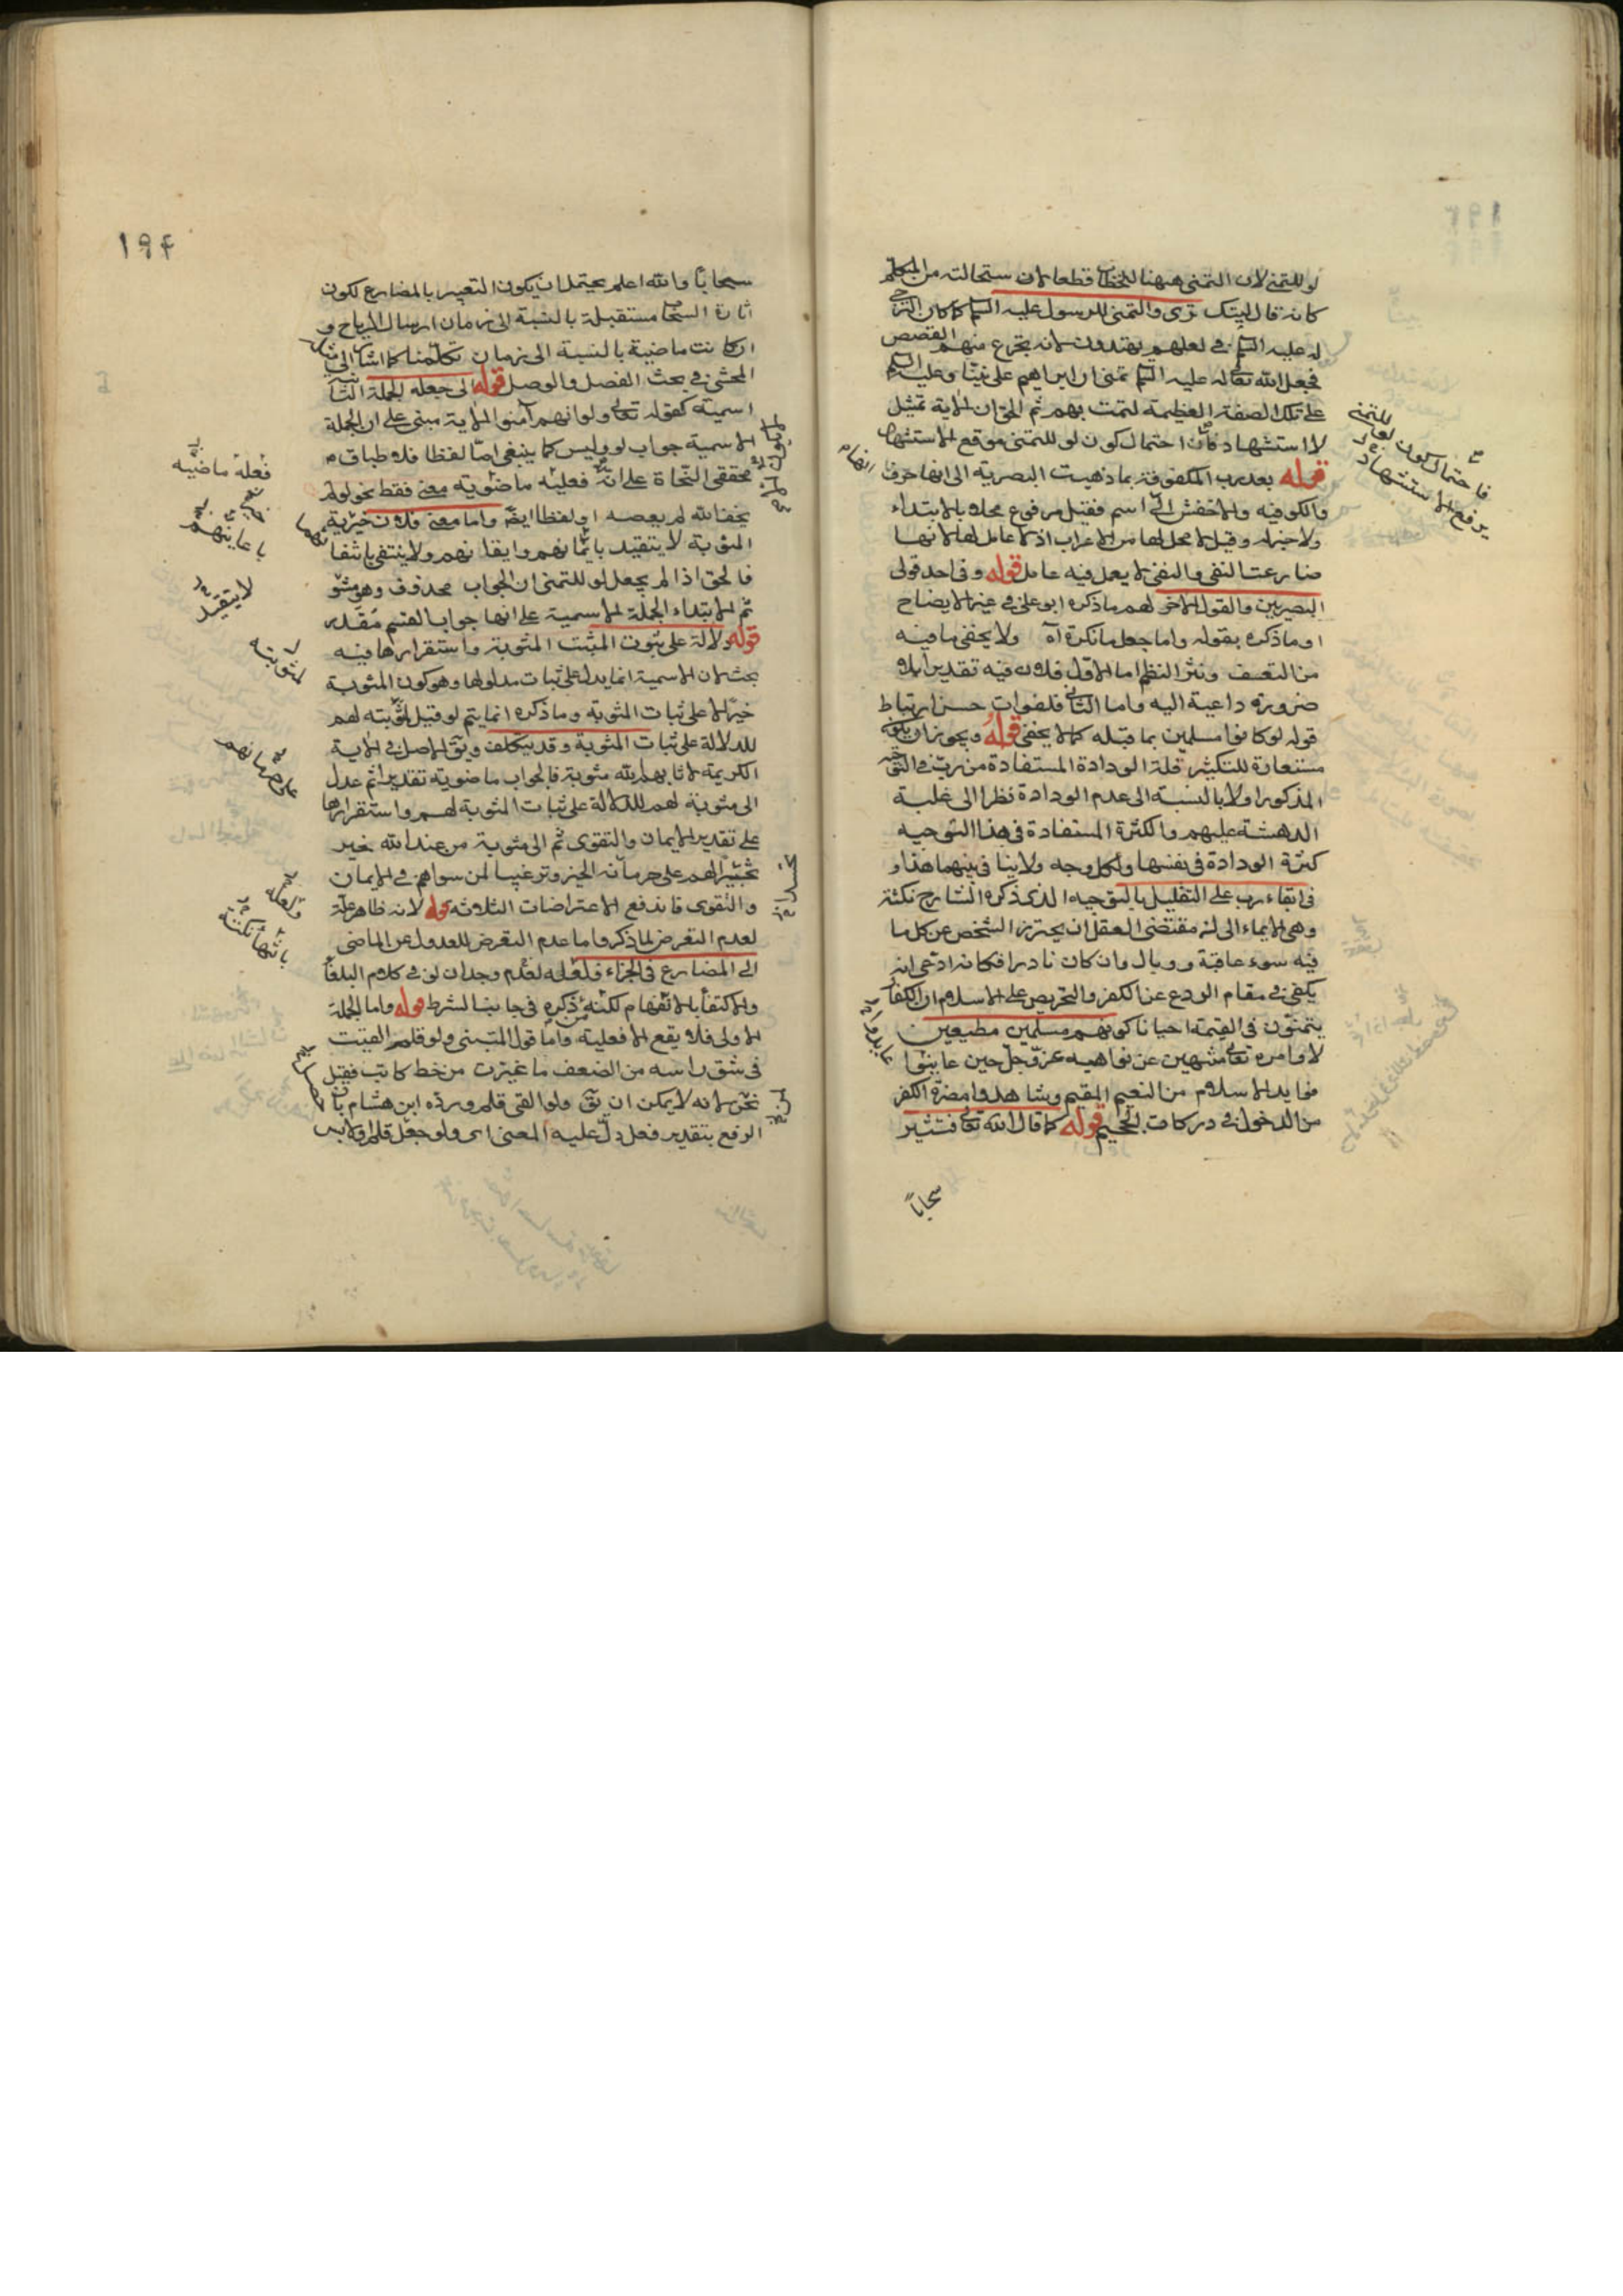 لو للتمنى لان التمنى ههنا للخطاب قطعا لان ستحالته من المتكلم
كانه قال ليتك ترى والتمنى للرسول عليه السلم كما كان الترجى
له عليه السلم فى لعلهم يهتدون لانه تجرع منهم القصص
فجعل الله تعالى له عليه السلم تمنى ان ابراهيم على نبينا وعليه السلم
على تلك الصفة العظيمة لتمت بهم ثم الحق ان الاية تمثيل
لا استشهاد فان احتمال كون لو للتمنى موقع الاستشهاد
قوله بعد رب المكفوفة بما ذهبت البصرية الى انها حرف
والكوفيه والاخفش الى اسم فقيل مرفوع محلا بالابتداء
ولا خبر له وقيل لا محل لها من الاعراب اذ لا عامل لها لانها
ضارعت النفى والنفى لا يعمل فيه عامل قوله وفى احد قولى
البصريين والقول الاخر لهم ما ذكره ابو على فى غير الايضاح
او ما ذكره بقوله واما جعل ما نكرة اه ولا يخفى ما فيه
من التعسف وبتر النظم اما الاول فلان فيه تقدير ابلا
ضرورة داعية اليه واما الثانى فلفوات حسن ارتباط
قوله لو كانوا مسلمين بما قبله كما لا يخفى قوله ويجوز ان يكون
مستعارة للتكثير قلة الودادة المستفادة من رب فى التوجيه
المذكور اولا بالنسبة الى عدم الودادة نظرا الى غلبة
الدهشة عليهم والكثرة المستفادة فى هذا التوجيه
كثرة الودادة فى نفسها ولكل وجه ولا ينافى بينهما هذا و
فى ابقاء رب على التقليل بالتوجيه الذى ذكره الشارح نكتة
وهى الايماء الى ان مقتضى العقل ان يحترز الشخص عن كل ما
فيه سوء عاقبة ووبال وان كان نادرا فكانه ادعى انه
يكفى فى مقام الردع عن الكفر والتحريص على الاسلام ان الكفار
يتمنون فى القيمة احيانا كونهم مسلمين مطيعين
لاوامره تعالى منتهين عن نواهيه عز وجل حين عاينوا
فوايد الاسلام من النعيم المقيم وشاهدوا مضرة الكفر
من الدخول فى دركات الجحيم قوله كما قال الله تعالى فتثير
سحابا
فاحتمال كون لو للتمنى
يرفع الاستشهاد
١٩٤
سحابا والله اعلم يحتمل ان يكون التعبير بالمضارع لكون
اثارة السحاب مستقبلة بالنسبة الى زمان ارسال الرياح و
ان كانت ماضية بالنسبة الى زمان تكلمنا كما اشار الى مثله
المحشى فى بحث الفصل والوصل قوله الى جعله الجملة الثانية
اسمية كقوله تعالى ولو انهم آمنوا الاية مبنى على ان الجملة
الاسمية جواب لو وليس كما ينبغى اما لفظا فلاطباق
محققى النحاة على انه فعليه ماضويه معنى فقط نحو لو لم
يخف الله لم يعصه او لفظا ايضا واما معنى فلان خيرية
المثوبة لا يتقيد بايمانهم وايقانهم ولا ينتفى بانتفا
فالحق اذا لم يجعل لو للتمنى ان الجواب محذوف وهو مثو
ثم الابتداء الجملة الاسمية على انها جواب القسم مقدر
قوله دلالة على ثبوت المثبت المثوبة واستقرارها فيه
بحث لان الاسمية انما يدل على ثبات مدلولها وهو كون المثوبة
خيرا لا على ثبات المثوبة وما ذكره انما يتم لو قيل لمثوبته لهم
للدلالة على ثبات المثوبة وقد يتكلف ويق الاصل فى الاية
الكريمة لاثابهم الله مثوبة فالجواب ماضوية تقديرا ثم عدل
الى مثوبة لهم للدلالة على ثبات المثوبة لهم واستقرارها
على تقدير الايمان والتقوى ثم الى مثوبة من عند الله خير
تحسيرا لهم على حرمانه الخير وترغيبا لمن سواهم فى الايمان
والتقوى فاندفع الاعتراضات الثلاثة قوله لانه ظاهر علة
لعدم التعرض لما ذكر واما عدم التعرض للعدول عن الماضى
الى المضارع فى الجزاء فلعله لعدم وجدان لو فى كلام البلغا
والاكتفا بالافهام لكنه ذكره فى جانب الشرط قوله واما الجملة
الاولى فلا يقع الا فعلية واما قول المتنبى ولو قلم القيت
فى شق راسه من الضعف ما غيرت من خط كاتب فقيل
لحن لانه لا يمكن ان يق ولو القى قلم ورده ابن هشام بان
الرفع بتقدير فعل دل عليه المعنى اى ولو جعل قلم او لابس
فعله ماضيه
لا يتقيد
لمثوبته
حرمانهم
ولعله